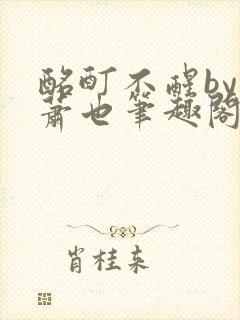 酩酊不醒by
萧也笔趣阁
肖桂来